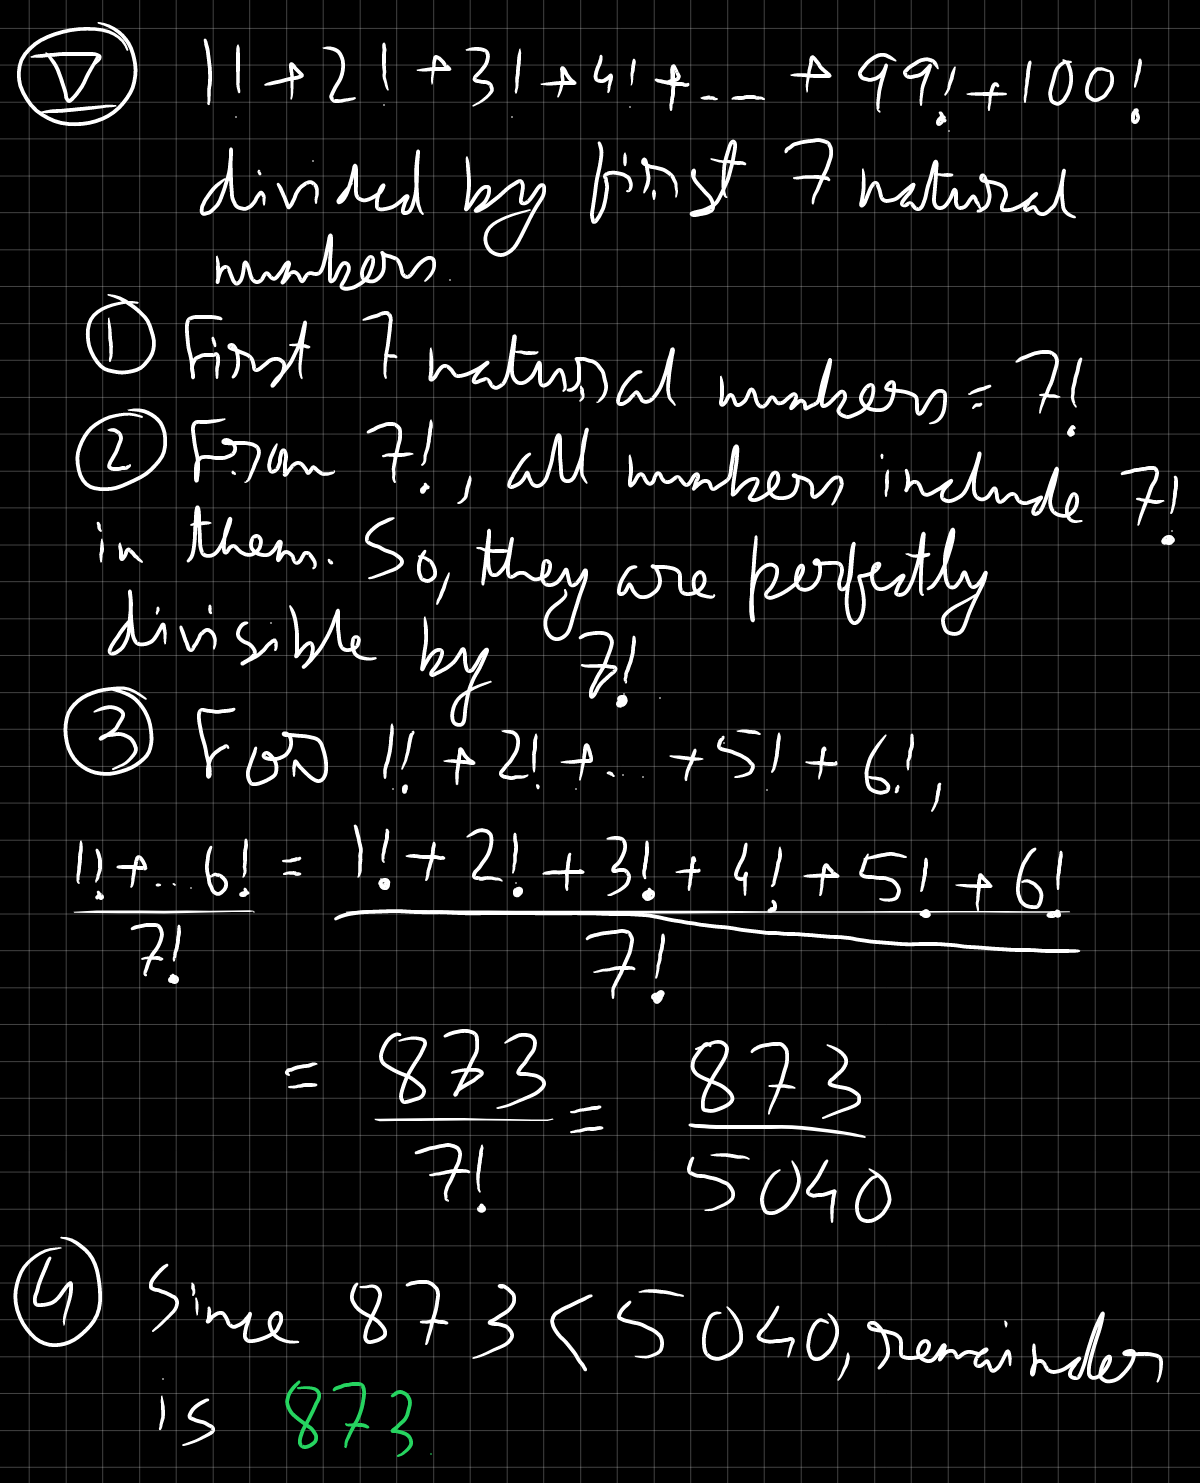 V 1! + 2! + 3! + 4! + -- + 99! + 100!
divided by first 7 natural
numbers.
1 First 7 natural numbers = 7!
2 From 7!, all numbers include 7!
in them. So, they are perfectly
divisible by 7!
3 For 1! + 2! + ... + 5! + 6!,
1! + ... 6! / 7! = 1! + 2! + 3! + 4! + 5! + 6! / 7!
= 873 / 7! = 873 / 5040
4 Since 873 < 5040, remainder
is 873.